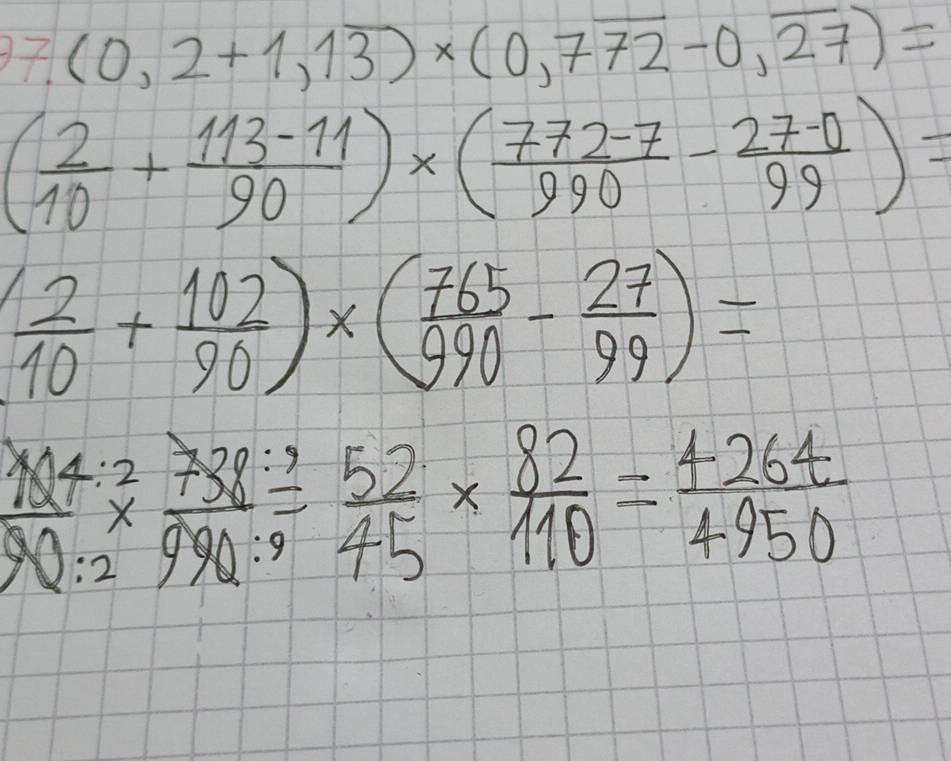 97. (0,2+1,1\overline{3})×(0,7\overline{72}-0,\overline{27})=
(2/10 + (113-11)/90) × ((772-7)/990 - (27-0)/99) =
(2/10 + 102/90) × (765/990 - 27/99) =
104:2/90:2 × 738:9/990:9 = 52/45 × 82/110 = 4264/4950